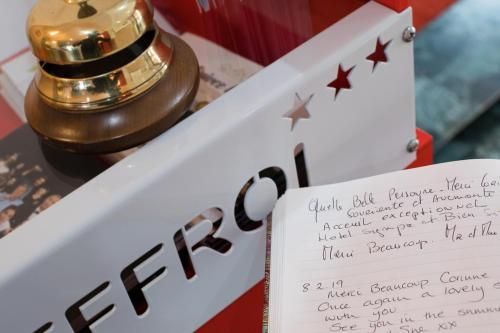 EFFROI
Quelle Belle Personne. Merci
Souriante et Avenante
Accueil exceptionnel
Hotel Sympa et Bien
Merci Beaucoup. M et M
8.2.19
Merci Beaucoup Corinne
Once again a lovely s
with you
See you in the summ
xix